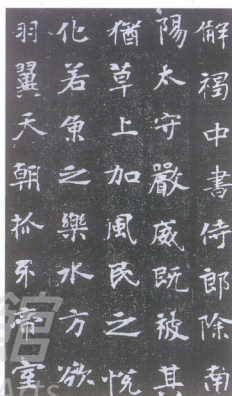 解褐中書侍郎除南
陽太守嚴威既被其
猶草上加風民之悅
化若魚之樂水方欲
羽翼天朝抓牙帝室
館
Arts